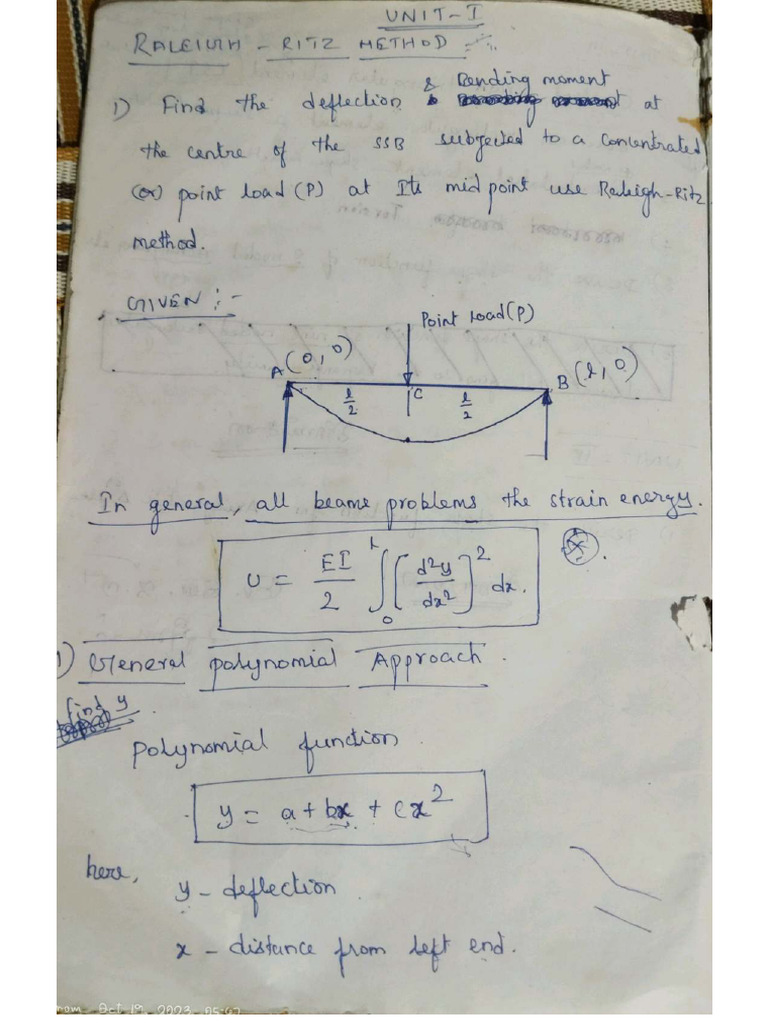 UNIT-I
RALEIGH - RITZ METHOD :-
& Bending moment
1) Find the deflection & at
the centre of the SSB subjected to a concentrated
(or) point load (P) at Its mid point use Raleigh-Ritz
method.
GIVEN :-
Point load (P)
A (0, 0)
B (l, 0)
C
l/2
l/2
In general, all beame problems the strain energy.
U = EI/2 ∫₀ˡ [d²y/dx²]² dx.
1) General polynomial Approach.
find y
polynomial function
y = a + bx + cx²
here,
y - deflection
x - distance from left end.